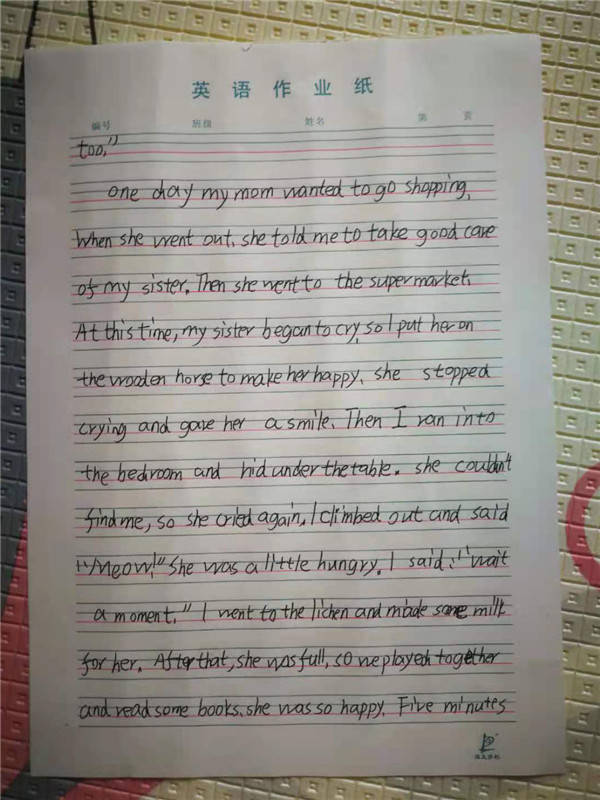 英语作业纸
编号 班级 姓名 第 页
too."
One day my mom wanted to go shopping.
When she went out, she told me to take good care
of my sister. Then she went to the supermarket.
At this time, my sister began to cry, so I put her on
the wooden horse to make her happy. she stopped
crying and gave her a smile. Then I ran into
the bedroom and hid under the table. she couldn't
find me, so she cried again. I climbed out and said
"Meow!" She was a little hungry. I said: "wait
a moment." I went to the lichen and made some milk
for her. After that, she was full, so we played together
and read some books. she was so happy. Five minutes